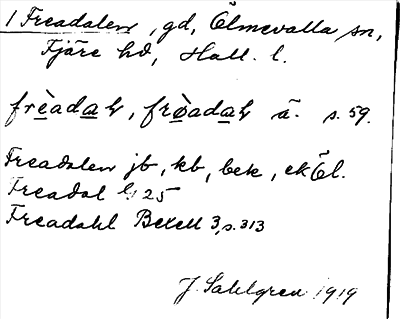 1 Freadalen, gd, Ölmevalla sn,
Fjäre hd, Hall. l.
frèadaɫ, frøadaɫ ä. s. 59.
Freadalen jb, kb, bek, ek Öl.
Freadal G 25
Freadahl Bexell 3, s. 313
J. Sahlgren 1919